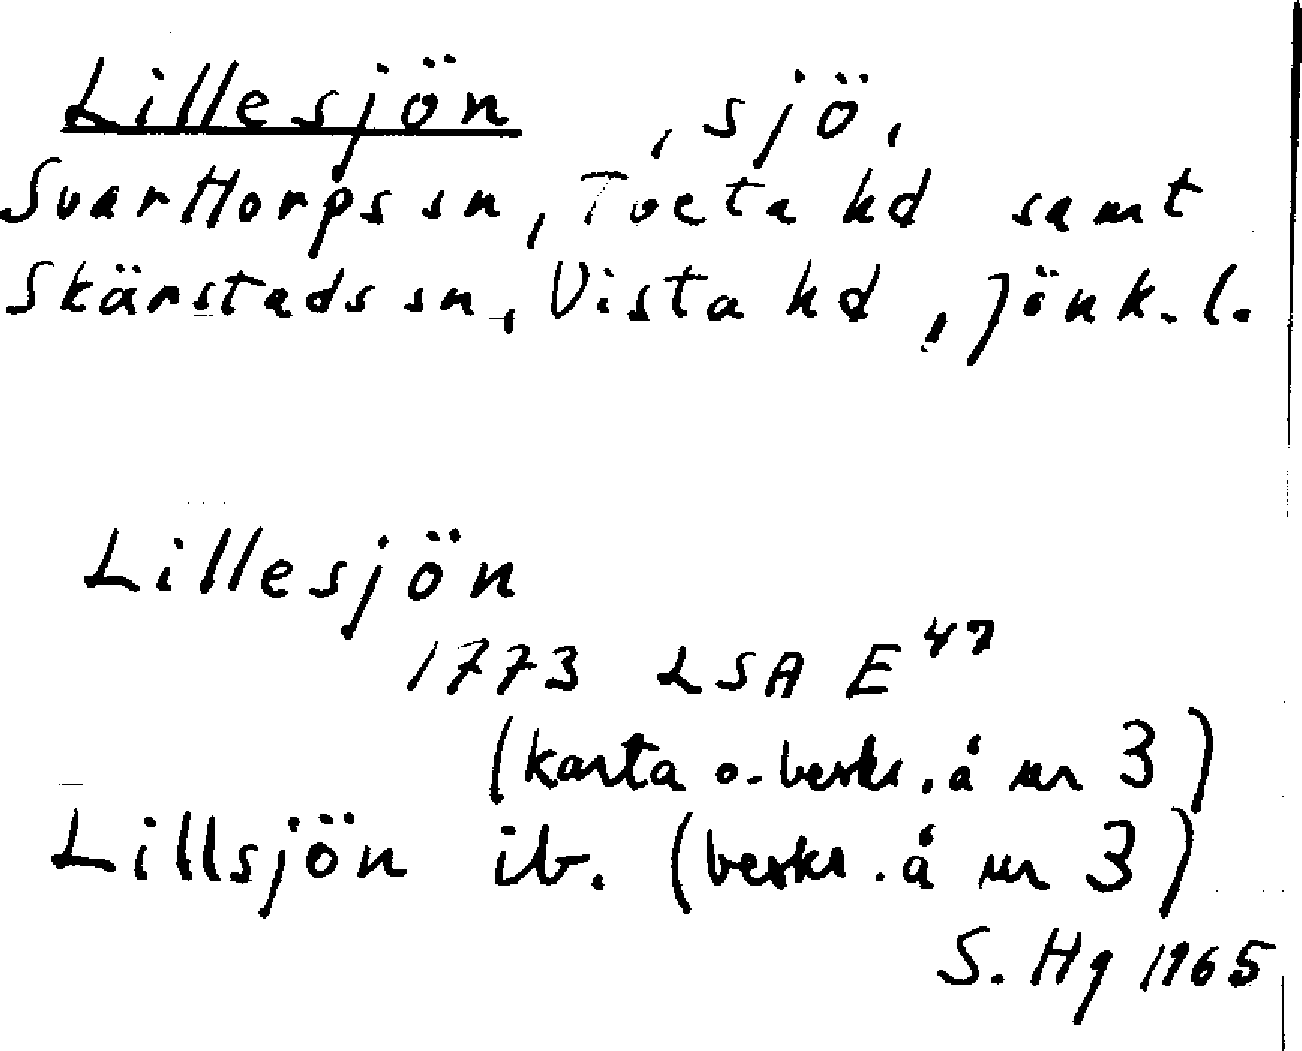 Lillesjön, sjö,
Svarttorps sn, Tveta hd samt
Skärstads sn, Vista hd, Jönk. l.
Lillesjön
1773 LSA E 47
(karta o. beskr. å nr 3)
Lillsjön ib. (beskr. å nr 3)
S. Hg 1965